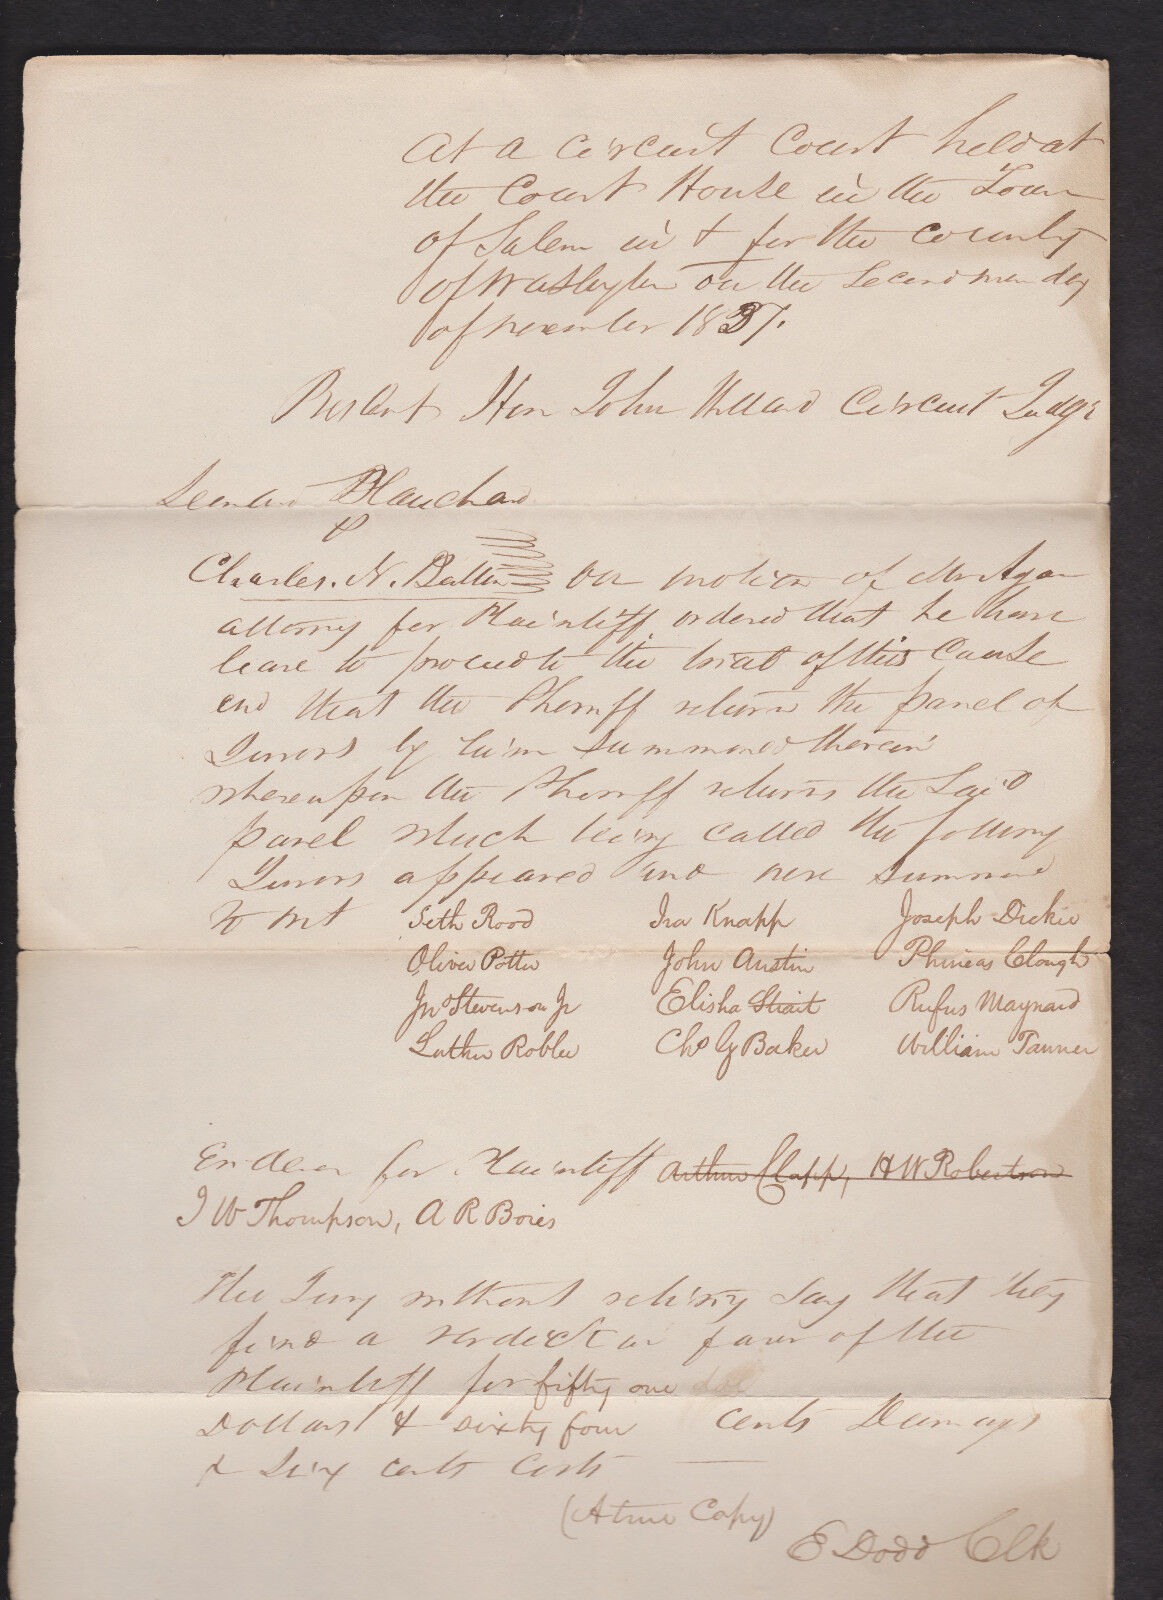 At a Circuit Court held at
the Court House in the Town
of Salem in & for the County
of Washington on the Second monday
of november 1837.
Present Hon John Willard Circuit Judge
Leonard Blanchard
Charles. N. Bullen On motion of Mr
attorny for Plaintiff ordered that he have
leave to proceed to the trial of this Cause
and that the Sheriff return the panel of
Jurors by him Summoned therein
whereupon the Sheriff returns the Said
panel which being called the following
Jurors appeared and were summoned
to wit Seth Rood Ira Knapp Joseph Dickie
Oliver Potter John Austin Phineas Clough
Jno Stevenson Jr Elisha Strait Rufus Maynard
Luther Roblee Chs G Baker William Tanner
for Plaintiff Arthur Clapp, H W Robertson
J W Thompson, A R Bories
The Jury without retiring Say that they
find a verdict in favor of the
Plaintiff for fifty one
Dollars & sixty four cents Damages
& Six cents Costs
(A true Copy)
E Dodd Clk